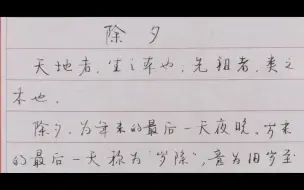 除夕
天地者，生之本也，先祖者，类之
本也。
除夕，为年末的最后一天夜晚。岁末
的最后一天称为“岁除”，意为旧岁至